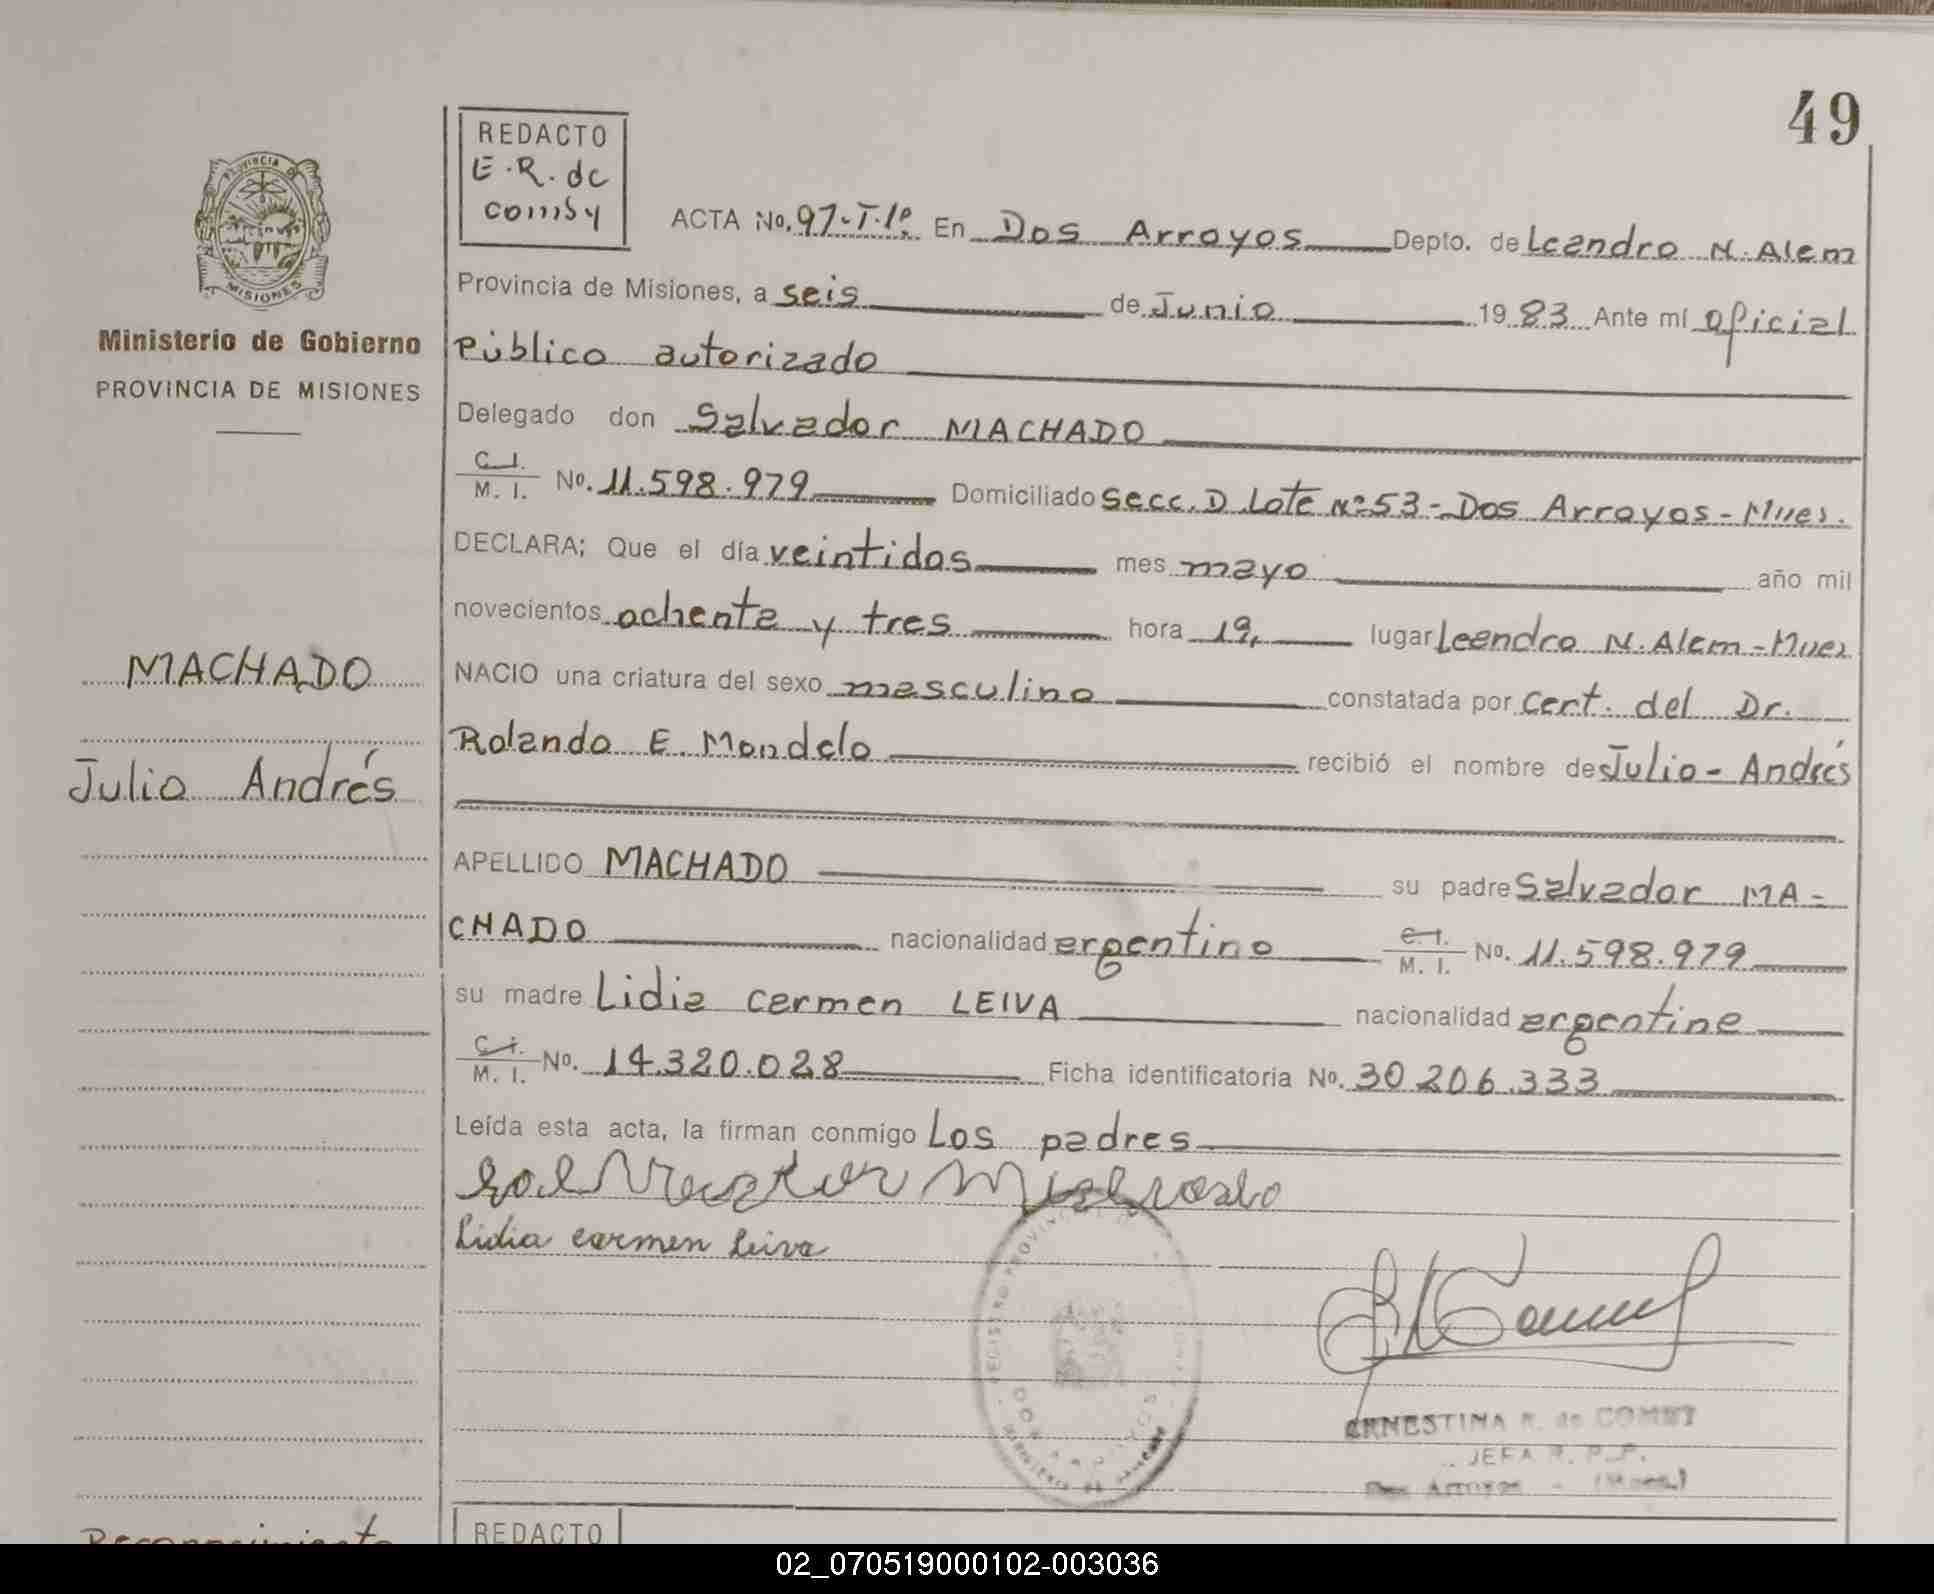 49
REDACTO
E.R. de
ACTA No. 97-T.1º. En Dos Arroyos Depto. de Leandro N. Alem
PROVINCIA DE
MISIONES
Provincia de Misiones, a seis de Junio 1983 Ante mí oficial
Ministerio de Gobierno
PROVINCIA DE MISIONES
Público autorizado
Delegado don Salvador MACHADO
C.I.
M. I. No. 11.598.979 Domiciliado Secc. D Lote Nº 53 - Dos Arroyos - Mnes.
DECLARA; Que el día veintidos mes mayo año mil
novecientos ochenta y tres hora 19, lugar Leandro N. Alem - Mnes
MACHADO
Julio Andrés
NACIO una criatura del sexo masculino constatada por Cert. del Dr.
Rolando E. Mondelo recibió el nombre de Julio - Andrés
APELLIDO MACHADO su padre Salvador MA-
CHADO nacionalidad argentino C.I.
M. I. No. 11.598.979
su madre Lidia Carmen LEIVA nacionalidad argentina
C.I.
M. I. No. 14.320.028 Ficha identificatoria No. 30 206.333
Leída esta acta, la firman conmigo Los padres
Lidia Carmen Leiva
REGISTRO PROVINCIAL
DOS ARROYOS
ERNESTINA R. de COMBY
JEFA R. P. P.
Dos Arroyos - (Mnes.)
Reconocimiento
REDACTO
02_070519000102-003036